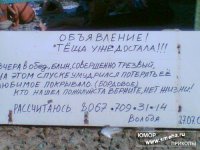 ОБЪЯВЛЕНИЕ!
"ТЁЩА УЖЕ ДОСТАЛА!!!
ВЧЕРА В ОБЕД, БЛИН, СОВЕРШЕННО ТРЕЗВЫЙ,
НА ЭТОМ СПУСКЕ УМУДРИЛСЯ ПОТЕРЯТЬ ЕЁ
ЛЮБИМОЕ ПОКРЫВАЛО (БОРДОВОЕ)
КТО НАШЁЛ ПОЖАЛУЙСТА ВЕРНИТЕ, НЕТ ЖИЗНИ!
РАССЧИТАЮСЬ 8067·709·31·14
Володя
ЮМОР
ПРИКОЛЫ